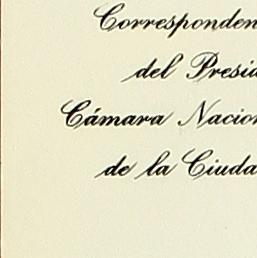 Corresponden
del Presi
Cámara Nacion
de la Ciuda